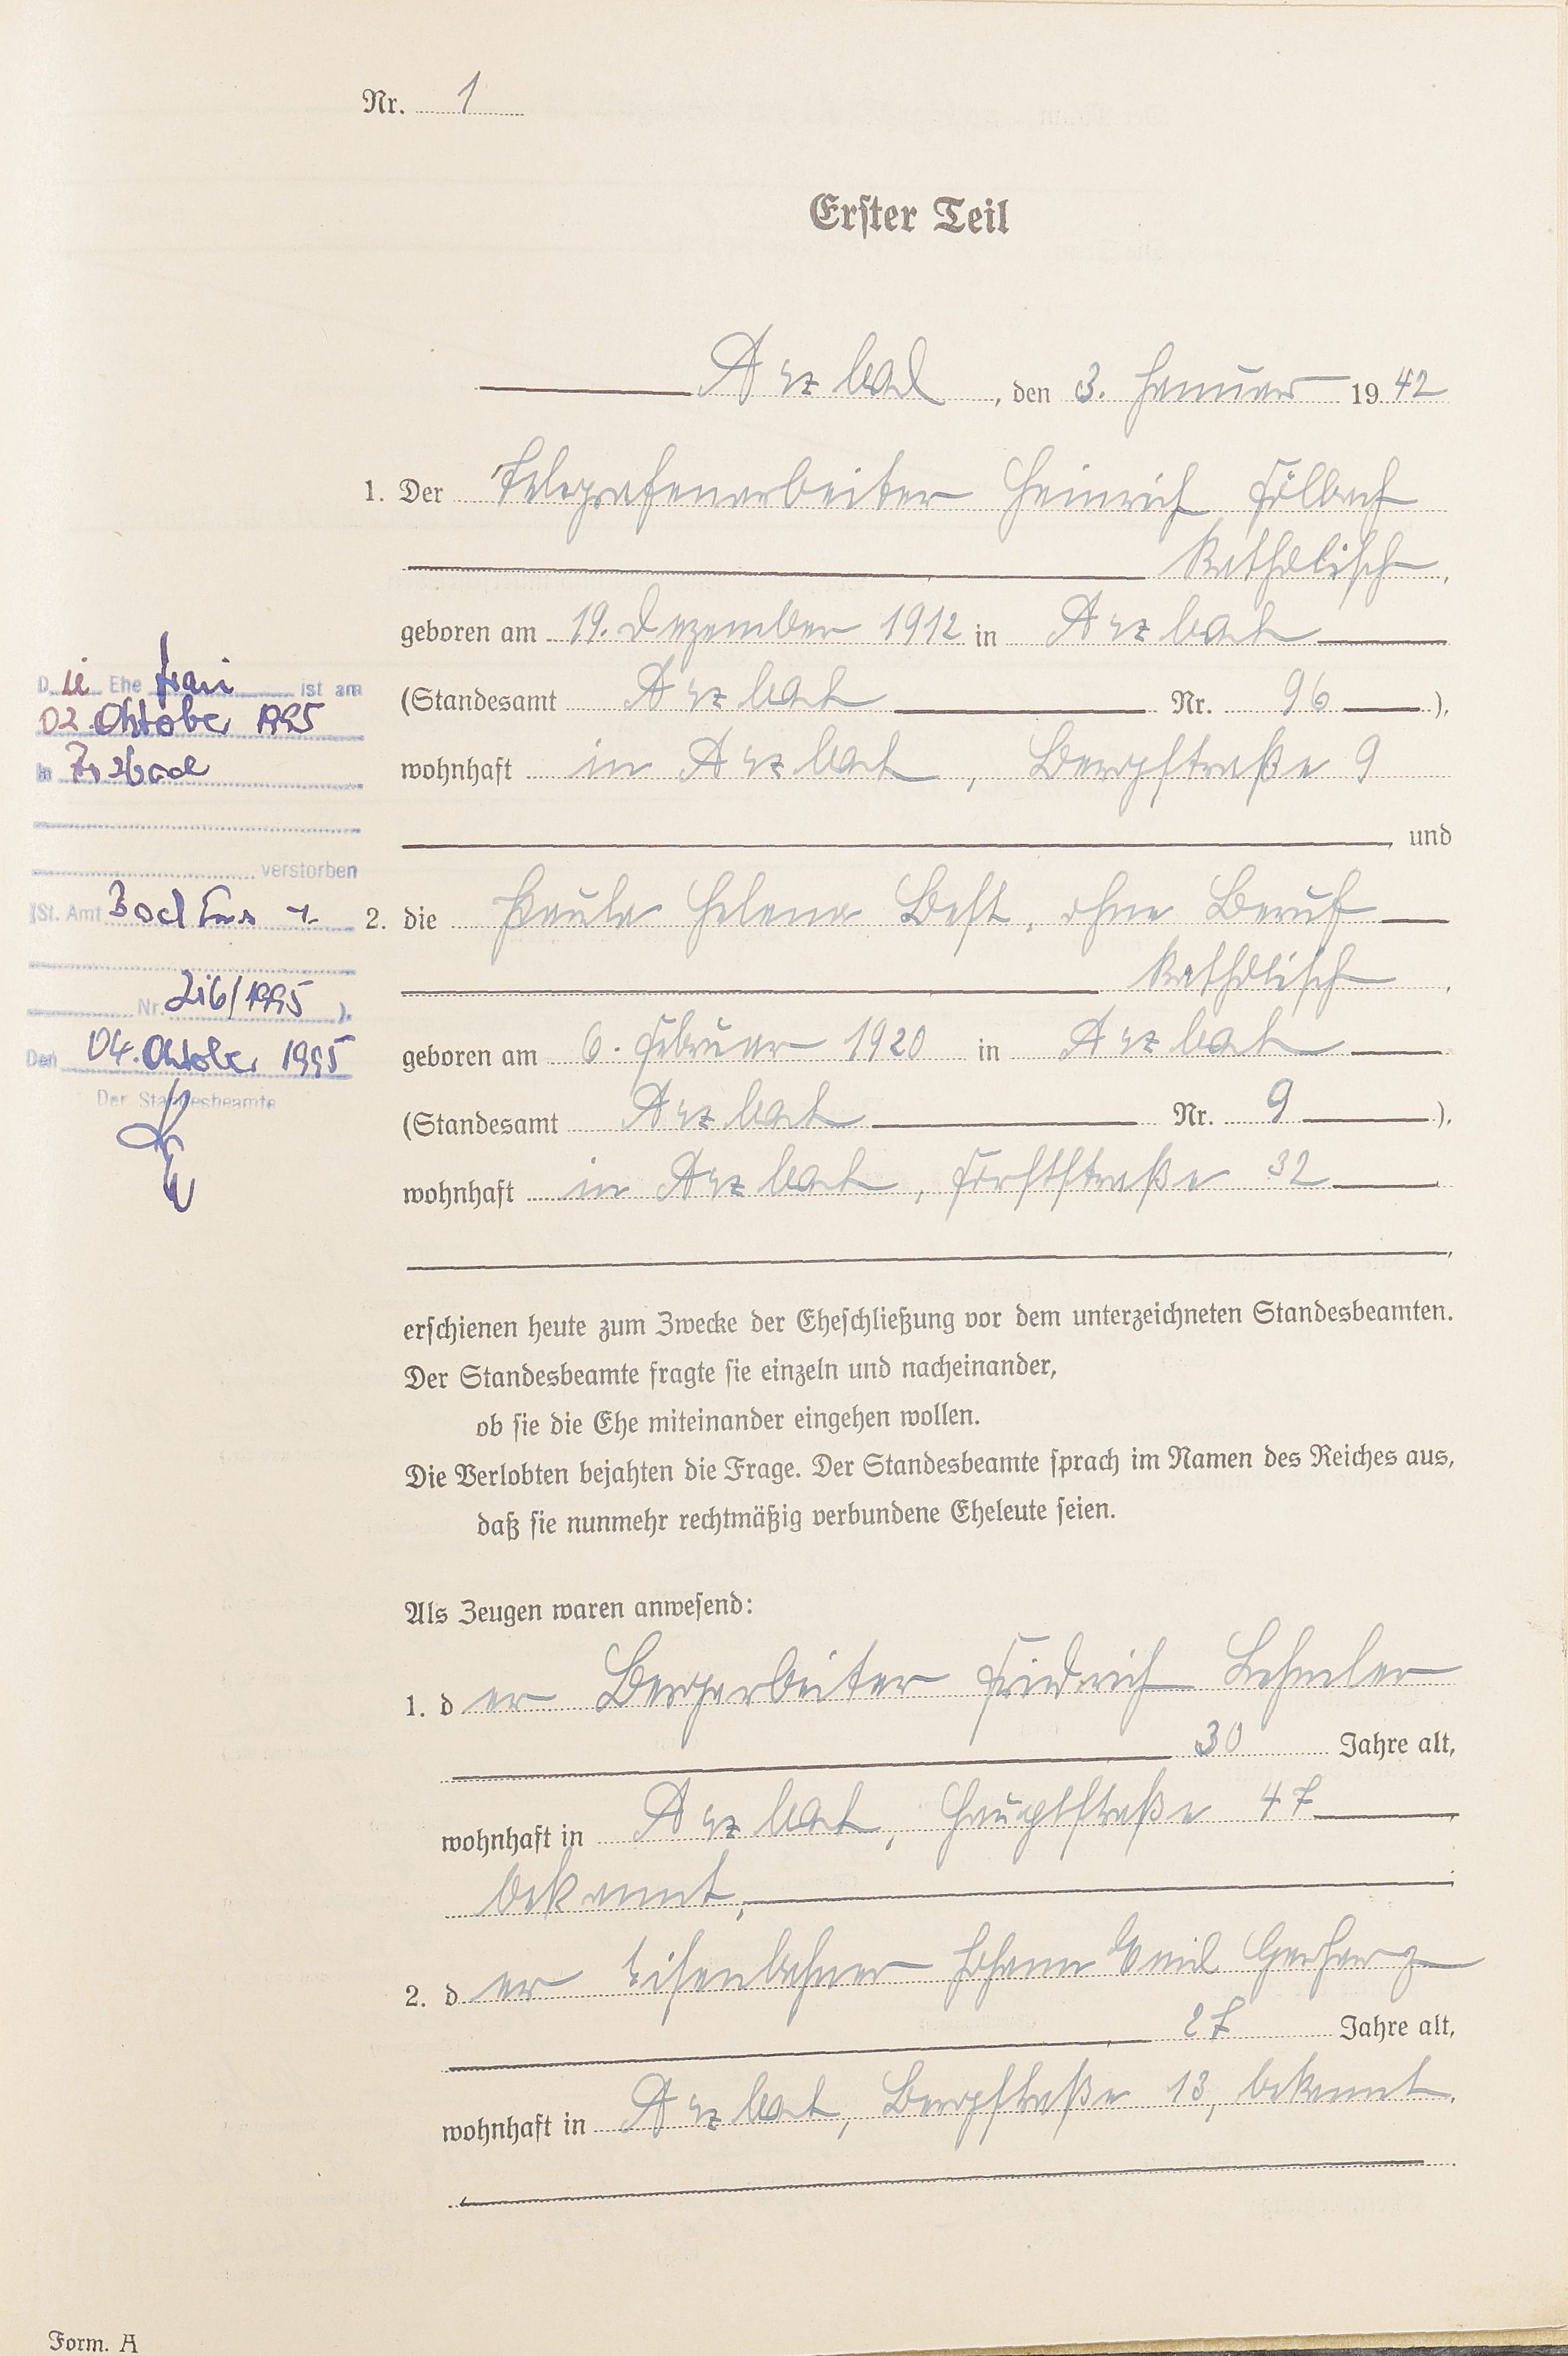 Nr. 1
Erster Teil
Arzbach, den 3. Januar 1942
1. Der Telegrafenarbeiter Heinrich Fölbach
katholisch,
geboren am 19. Dezember 1912 in Arzbach
(Standesamt Arzbach Nr. 96),
wohnhaft in Arzbach, Bergstraße 9
und
2. die Paula Helena Best, ohne Beruf
katholisch,
geboren am 6. Februar 1920 in Arzbach
(Standesamt Arzbach Nr. 9),
wohnhaft in Arzbach, Forststraße 32
,
erschienen heute zum Zwecke der Eheschließung vor dem unterzeichneten Standesbeamten.
Der Standesbeamte fragte sie einzeln und nacheinander,
ob sie die Ehe miteinander eingehen wollen.
Die Verlobten bejahten die Frage. Der Standesbeamte sprach im Namen des Reiches aus,
daß sie nunmehr rechtmäßig verbundene Eheleute seien.
Als Zeugen waren anwesend:
1. der Bergarbeiter Friedrich Lehmler
30 Jahre alt,
wohnhaft in Arzbach, Hauptstraße 47
bekannt,
2. der Eisenbahner Johann Emil Gerharz
27 Jahre alt,
wohnhaft in Arzbach, Bergstraße 13, bekannt.
Die Ehefrau ist am
02. Oktober 1995
in Arzbach
verstorben
(St. Amt Bad Ems
Nr. 216/1995).
Den 04. Oktober 1995
Der Standesbeamte
Form. A